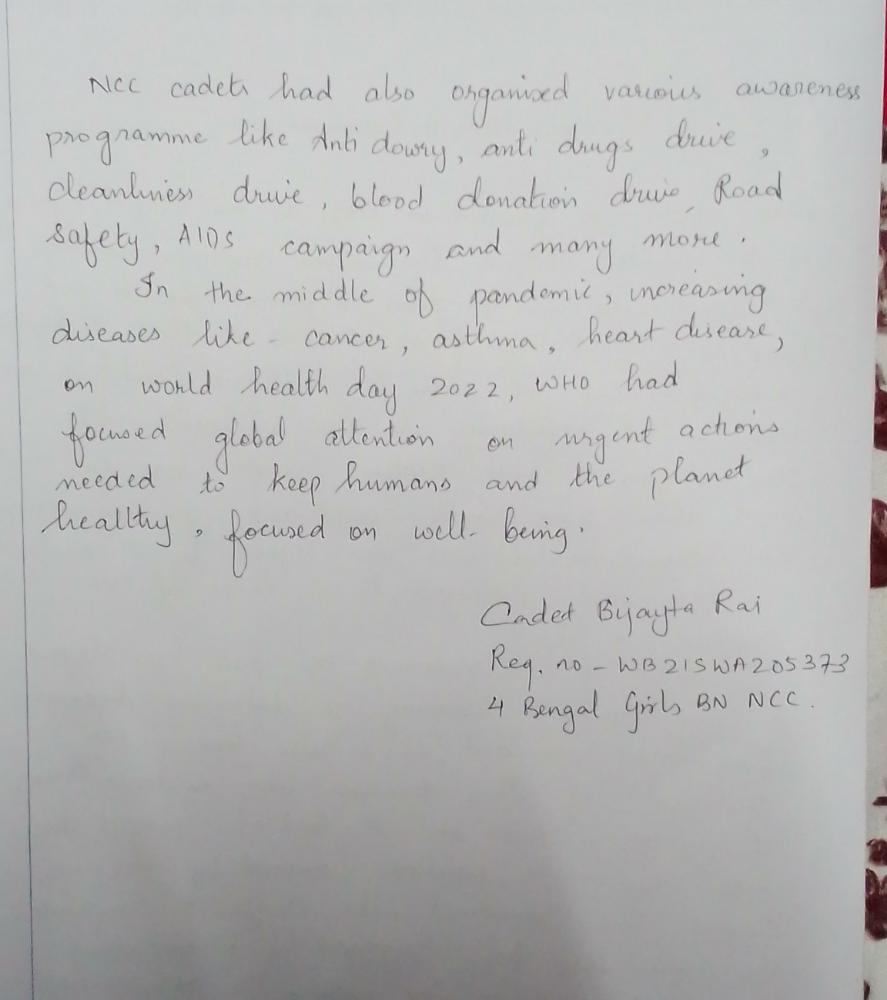 NCC cadets had also organised various awareness
programme like Anti dowry, anti drugs drive,
cleanliness drive, blood donation drive, Road
safety, AIDS campaign and many more.
In the middle of pandemic, increasing
diseases like - cancer, asthma, heart disease,
on world health day 2022, WHO had
focused global attention on urgent actions
needed to keep humans and the planet
healthy, focused on well-being.
Cadet Bijayta Rai
Reg. no - WB21SWA205373
4 Bengal Girls BN NCC.